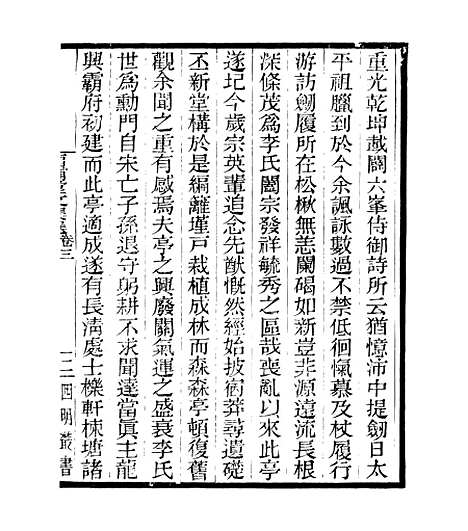 重光乾坤戡闢六峯侍御詩所云猶憶沛中提劔日太
平祖臘到於今余諷詠數過不禁低徊愾慕及杖履行
游訪劔履所在松楸無恙闌碣如新豈非源遠流長根
深條茂為李氏闔宗發祥毓秀之區哉喪亂以來此亭
遂圮今歲宗英輩追念先猷慨然經始披荷莽尋遺礎
丕新堂構於是編籬墐戶栽植成林而森森亭頓復舊
觀余聞之重有感焉夫亭之興廢關氣運之盛衰李氏
世為勳門自宋亡子孫退守躬耕不求聞達當眞主龍
興霸府初建而此亭適成遂有長淸處士櫟軒棟塘諸
卷三
二
四明叢書